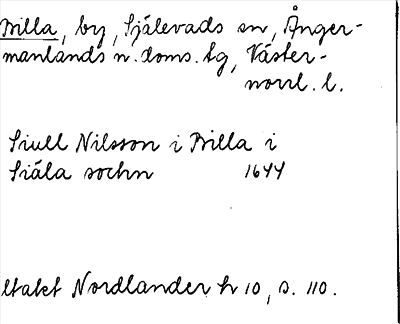 Billa, by, Själevads sn, Ånger-
manlands n. doms. tg, Väster-
norrl. l.
Siull Nilsson i Billa i
Siäla sochn 1644
ltakt Nordlander h 10, s. 110.